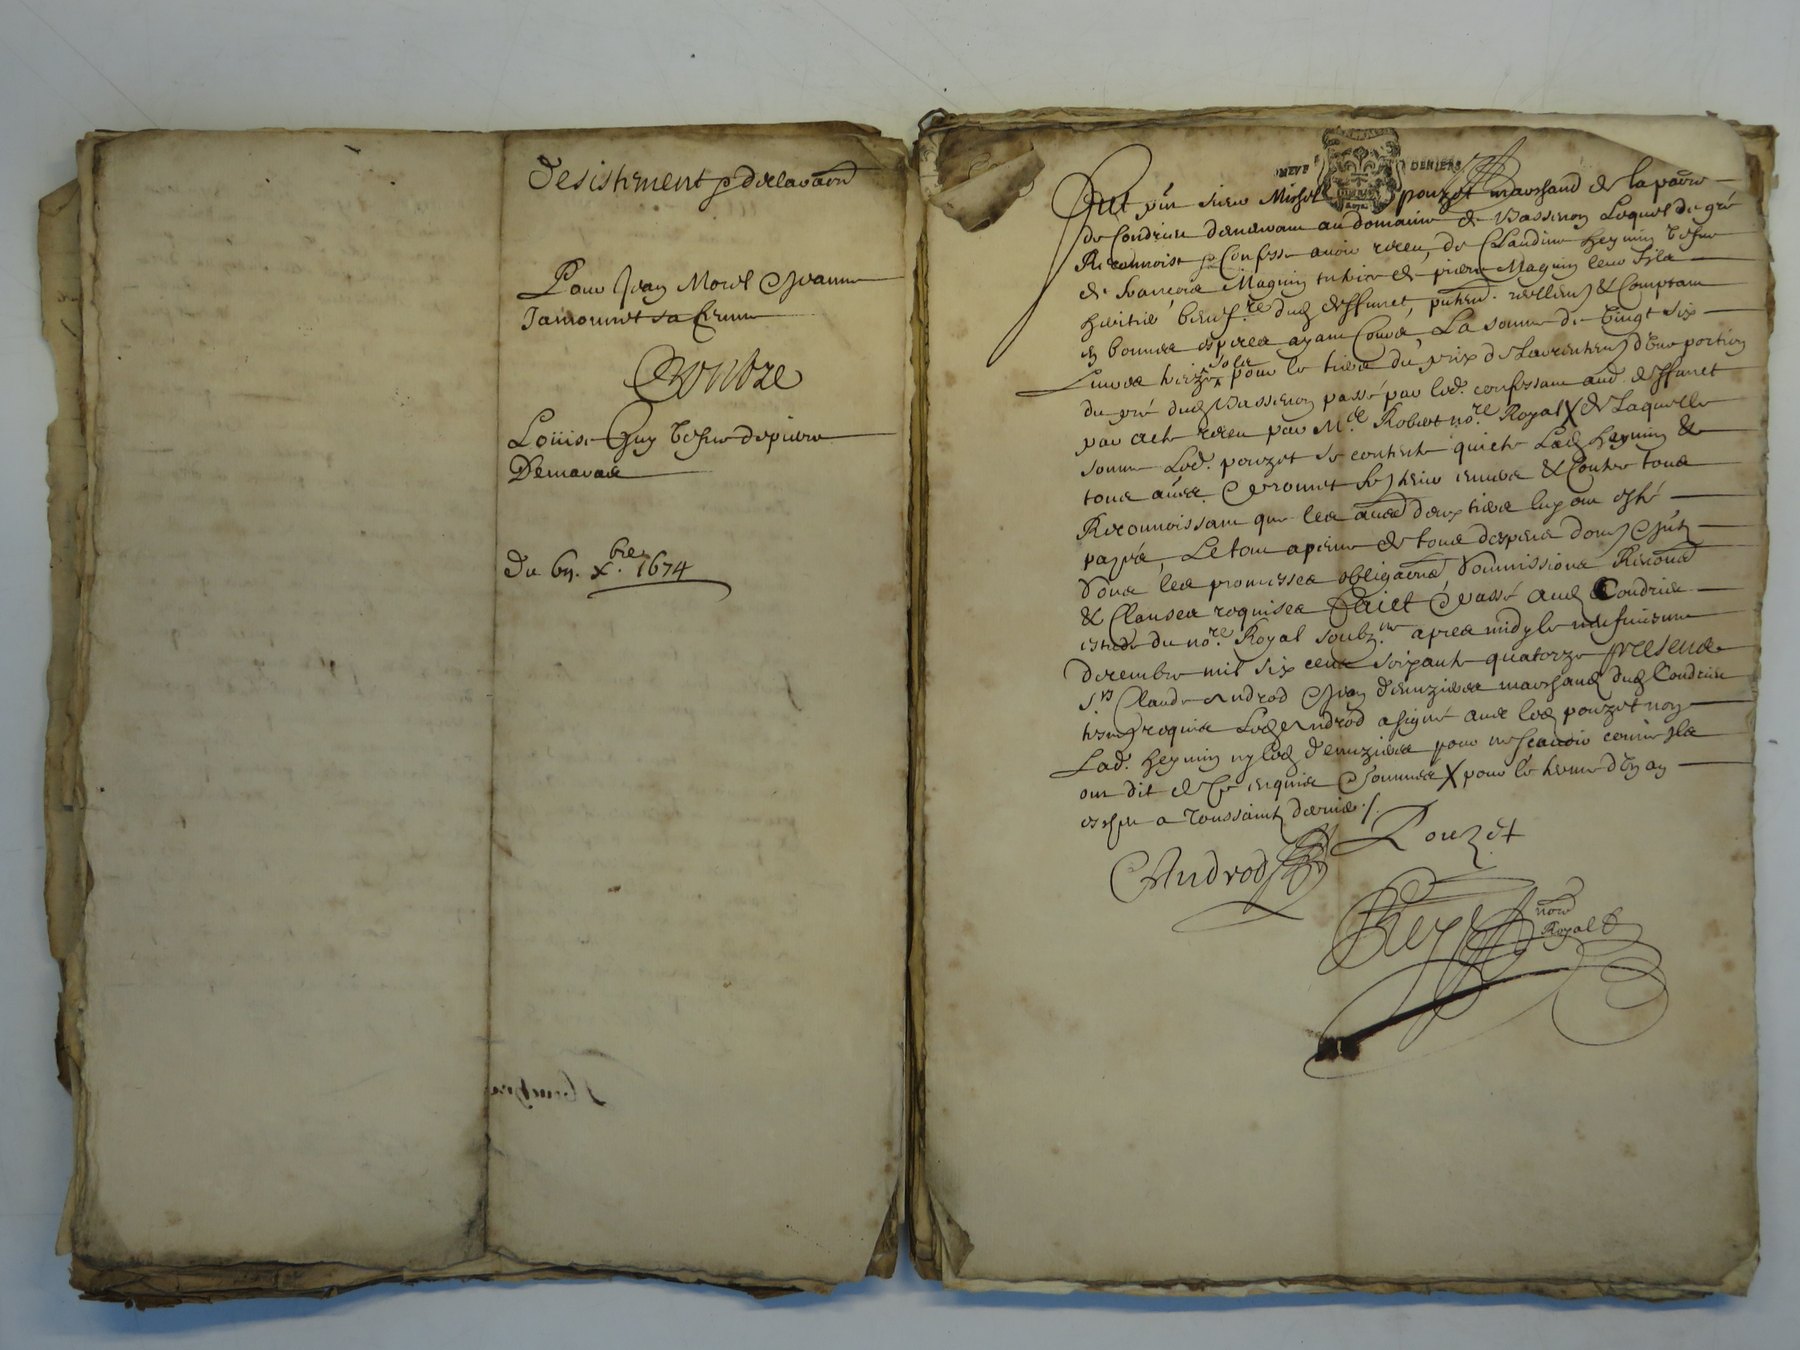 Desistement & declaraon
Pour Jean Morel & Jeanne
Jamounet sa femme
Contre
Louise Guy vefve de pierre
Demarae
Du 6e. xbre. 1674
NEVF DENIERS
Fut pnt sieur Michel pouzet marchand de la parre
de Condrieu demeurant au domaine de Vassenon Lequel de gré
Reconnoist & Confesse avoir receu, de Claudine heymin vefve
de francois Maguin tutrice de pierre Maguin leur filz
heritier benef.re dud deffunct, puttend. reellemt & Comptant
en bonnes especes ayant Cours, La somme de vingt six
Livres treize solz pour le tiers du prix de Lavrentemt d'une portion
du pré dud Vassenon passé par led. confessant aud deffunct
par acte receu par Me. Robert no.re Royal X de Laquelle
somme Led. pouzet se contente quitte Lad heymin &
tous autres & promet fe tenir envers & Contre tous
Reconnoissant que les autres deux tiers luy ont esté
payés, Le tout a peine de tous despens dom &
soubz les promesses obligaons, soumissions Renons
& Clauses requises Faict & Passé aud Condrieu
estude du no.re Royal soubz.né apres midy le neufviesme
decembre mil six cens soixante quatorze presents
srs Claude Androd & Jean Demzieres marchand dud Condrieu
tesmoins requis Led Androd a signé avec led pouzet non
Lad. heymin ny led Demzieres pour ne scavoir comme ilz
ont dit de ce enquis & sommés X pour le terme d'un an
escheu a Toussaintz dernier /.
Pouzet
CAndrod
nore
Royal